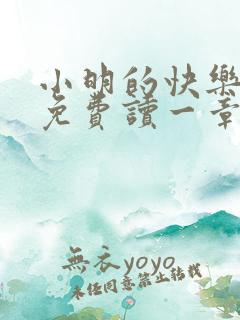 小明的快樂
免費讀一章
無衣yoyo
未經同意禁止轉載